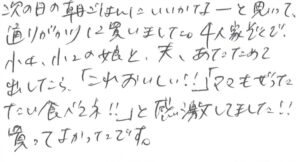 次の日の朝ごはんにいいかなーと思いて、
通りがかりに買いました。4人家族で、
小4、小2の娘と、夫、あたためて
出したら、「これおいしい!!」「ママもぜった
たい食べてネ!!」と感激してました!!
買ってよかったです。